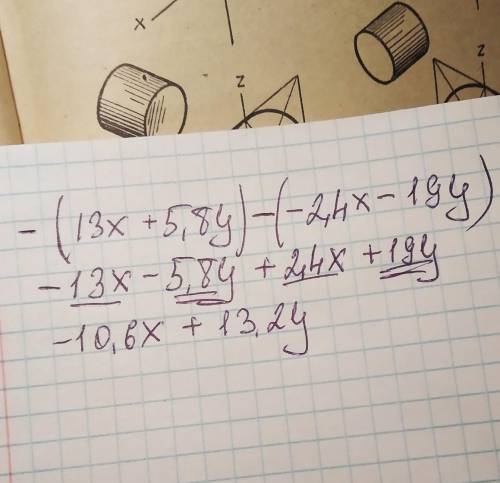 x
z
z
-(13x+5,8y)-(-2,4x-19y)
-13x-5,8y+2,4x+19y
-10,6x+13,2y